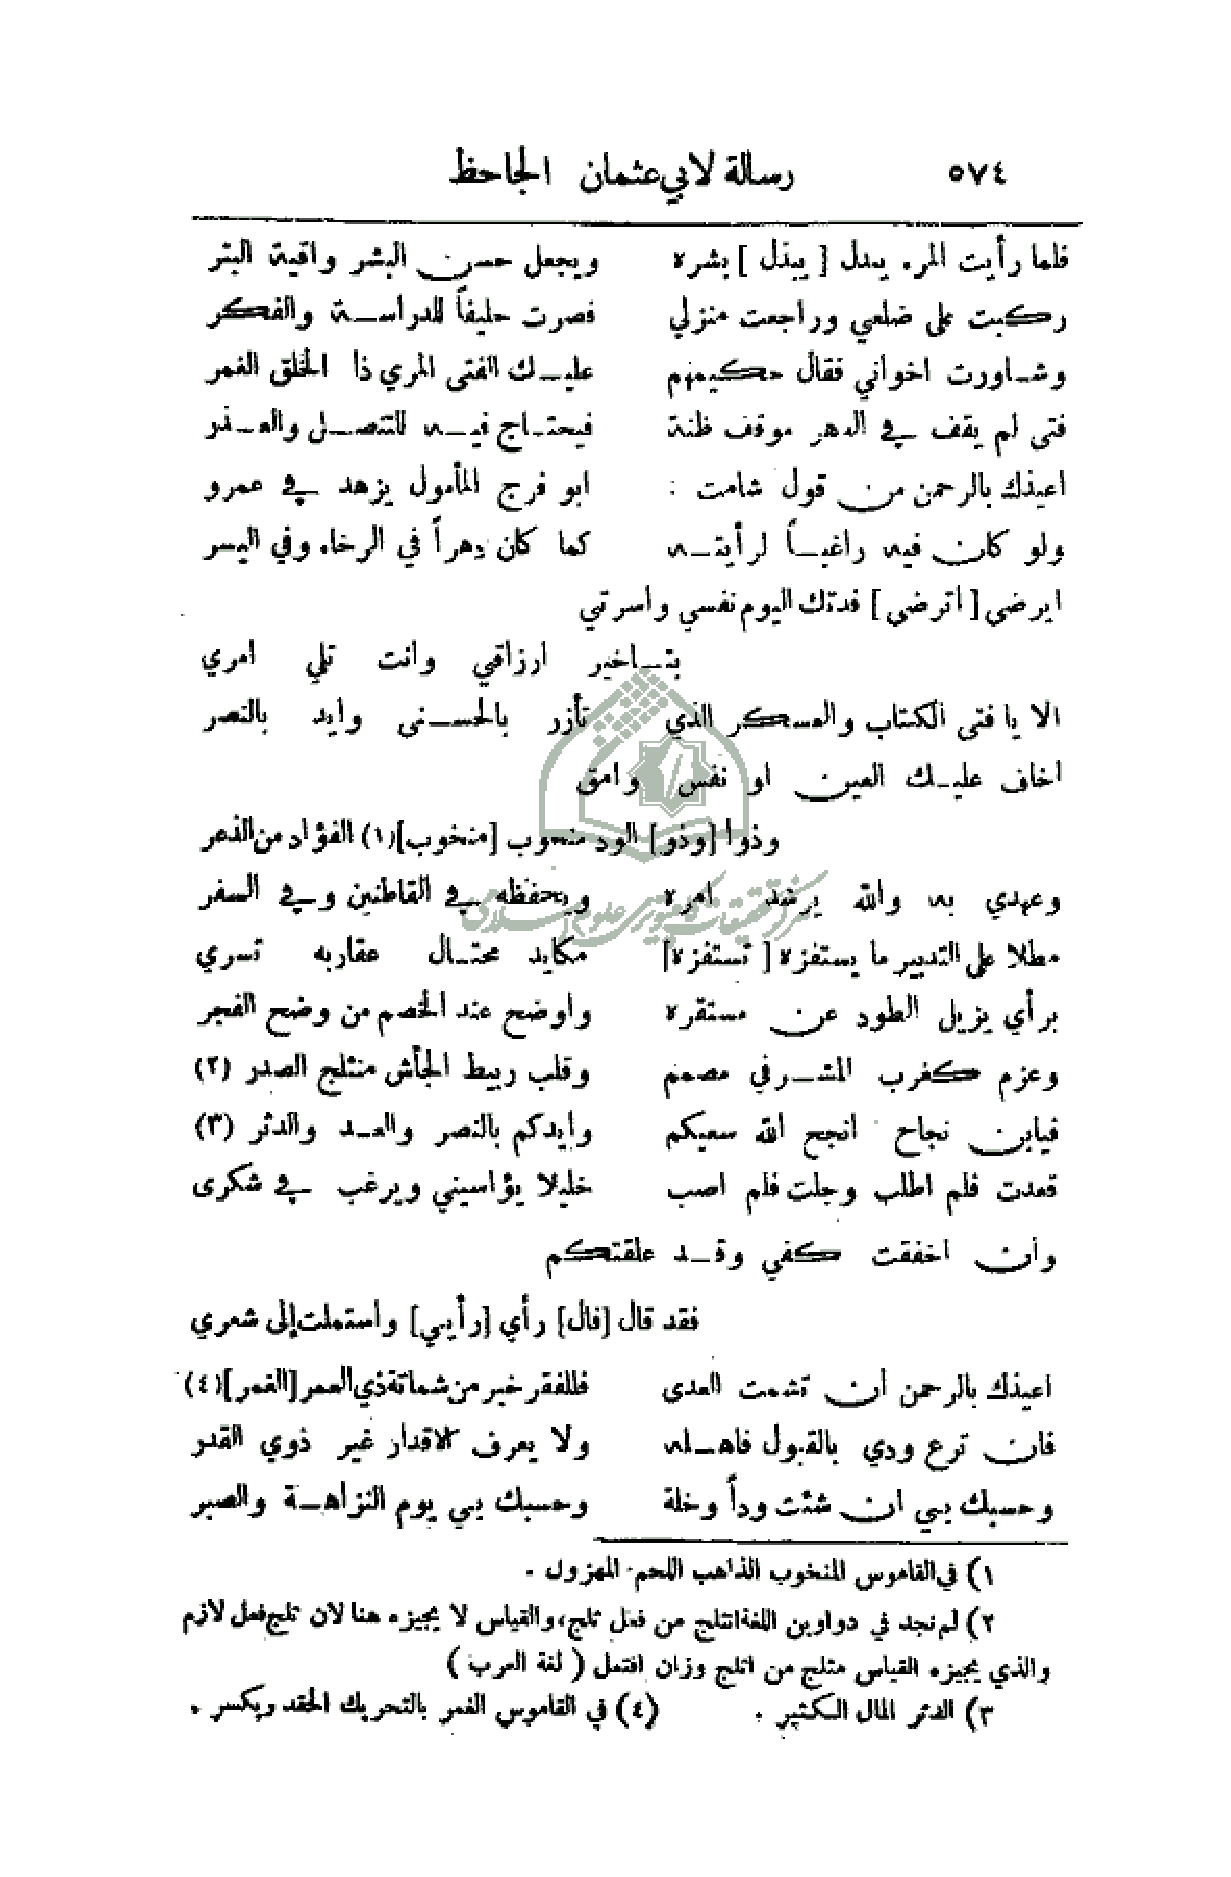 ٥٧٤ رسالة لابي عثمان الجاحظ
فلما رأيت المرء يبدل [ يبذل ] بشره ويجعل حسن البشر واقية البتر
ركبت على ضلعي وراجعت منزلي فصرت حليفاً للدراسة والفكر
وشاورت اخواني فقال حكيمهم عليك الفتى المري ذا الخلق الغمر
فتى لم يقف في الدهر موقف ظنة فيحتاج فيه للتنصل والعذر
اعيذك بالرحمن من قول شامت : ابو فرج المأمول يزهد في عمرو
ولو كان فيه راغباً لرأيته كما كان دهراً في الرخاء وفي اليسر
ايرضى [ أترضى ] فدتك اليوم نفسي واسرتي
بتأخير ارزاقي وانت تلي امري
الا يا فتى الكتاب والعسكر الذي تأزر بالحسنى وايد بالنصر
اخاف عليك العين او نفس وامق
وذوا [وذو] الود منحوب [منخوب](١) الفؤاد من الذعر
وعهدي به والله يرشد امره ويحفظه في القاطنين وفي السفر
مطلا على التدبير ما يستفزه [ تستفزه] مكايد محتال عقاربه تسري
برأي يزيل الطود عن مستقره واوضح عند الخصم من وضح الفجر
وعزم كغرب المشرفي مصمم وقلب ربيط الجأش منثلج الصدر (٢)
فيابن نجاح انجح الله سعيكم وايدكم بالنصر والعد والدثر (٣)
قعدت فلم اطلب وجلت فلم اصب خليلا يؤاسيني ويرغب في شكرى
وان اخفقت كفي وقد علقتكم
فقد قال [فال] رأي [رأيي] واستملت إلى شعري
اعيذك بالرحمن أن تشمت العدى فللفقر خير من شماتة ذي العمر [الغمر](٤)
فان ترع ودي بالقبول فاهله ولا يعرف الاقدار غير ذوي القدر
وحسبك بي ان شئت وداً وخلة وحسبك بي يوم النزاهة والصبر
١) في القاموس المنخوب الذاهب اللحم المهزول .
٢) لم نجد في دواوين اللغة انثلج من فعل ثلج، والقياس لا يجيزه هنا لان ثلج فعل لازم
والذي يجيزه القياس مثلج من اثلج وزان افتعل ( لغة العرب )
٣) الدثر المال الكثير . (٤) في القاموس الغمر بالتحريك الحقد ويكسر .
مرکز تحقیقات کامپیوتری علوم اسلامی